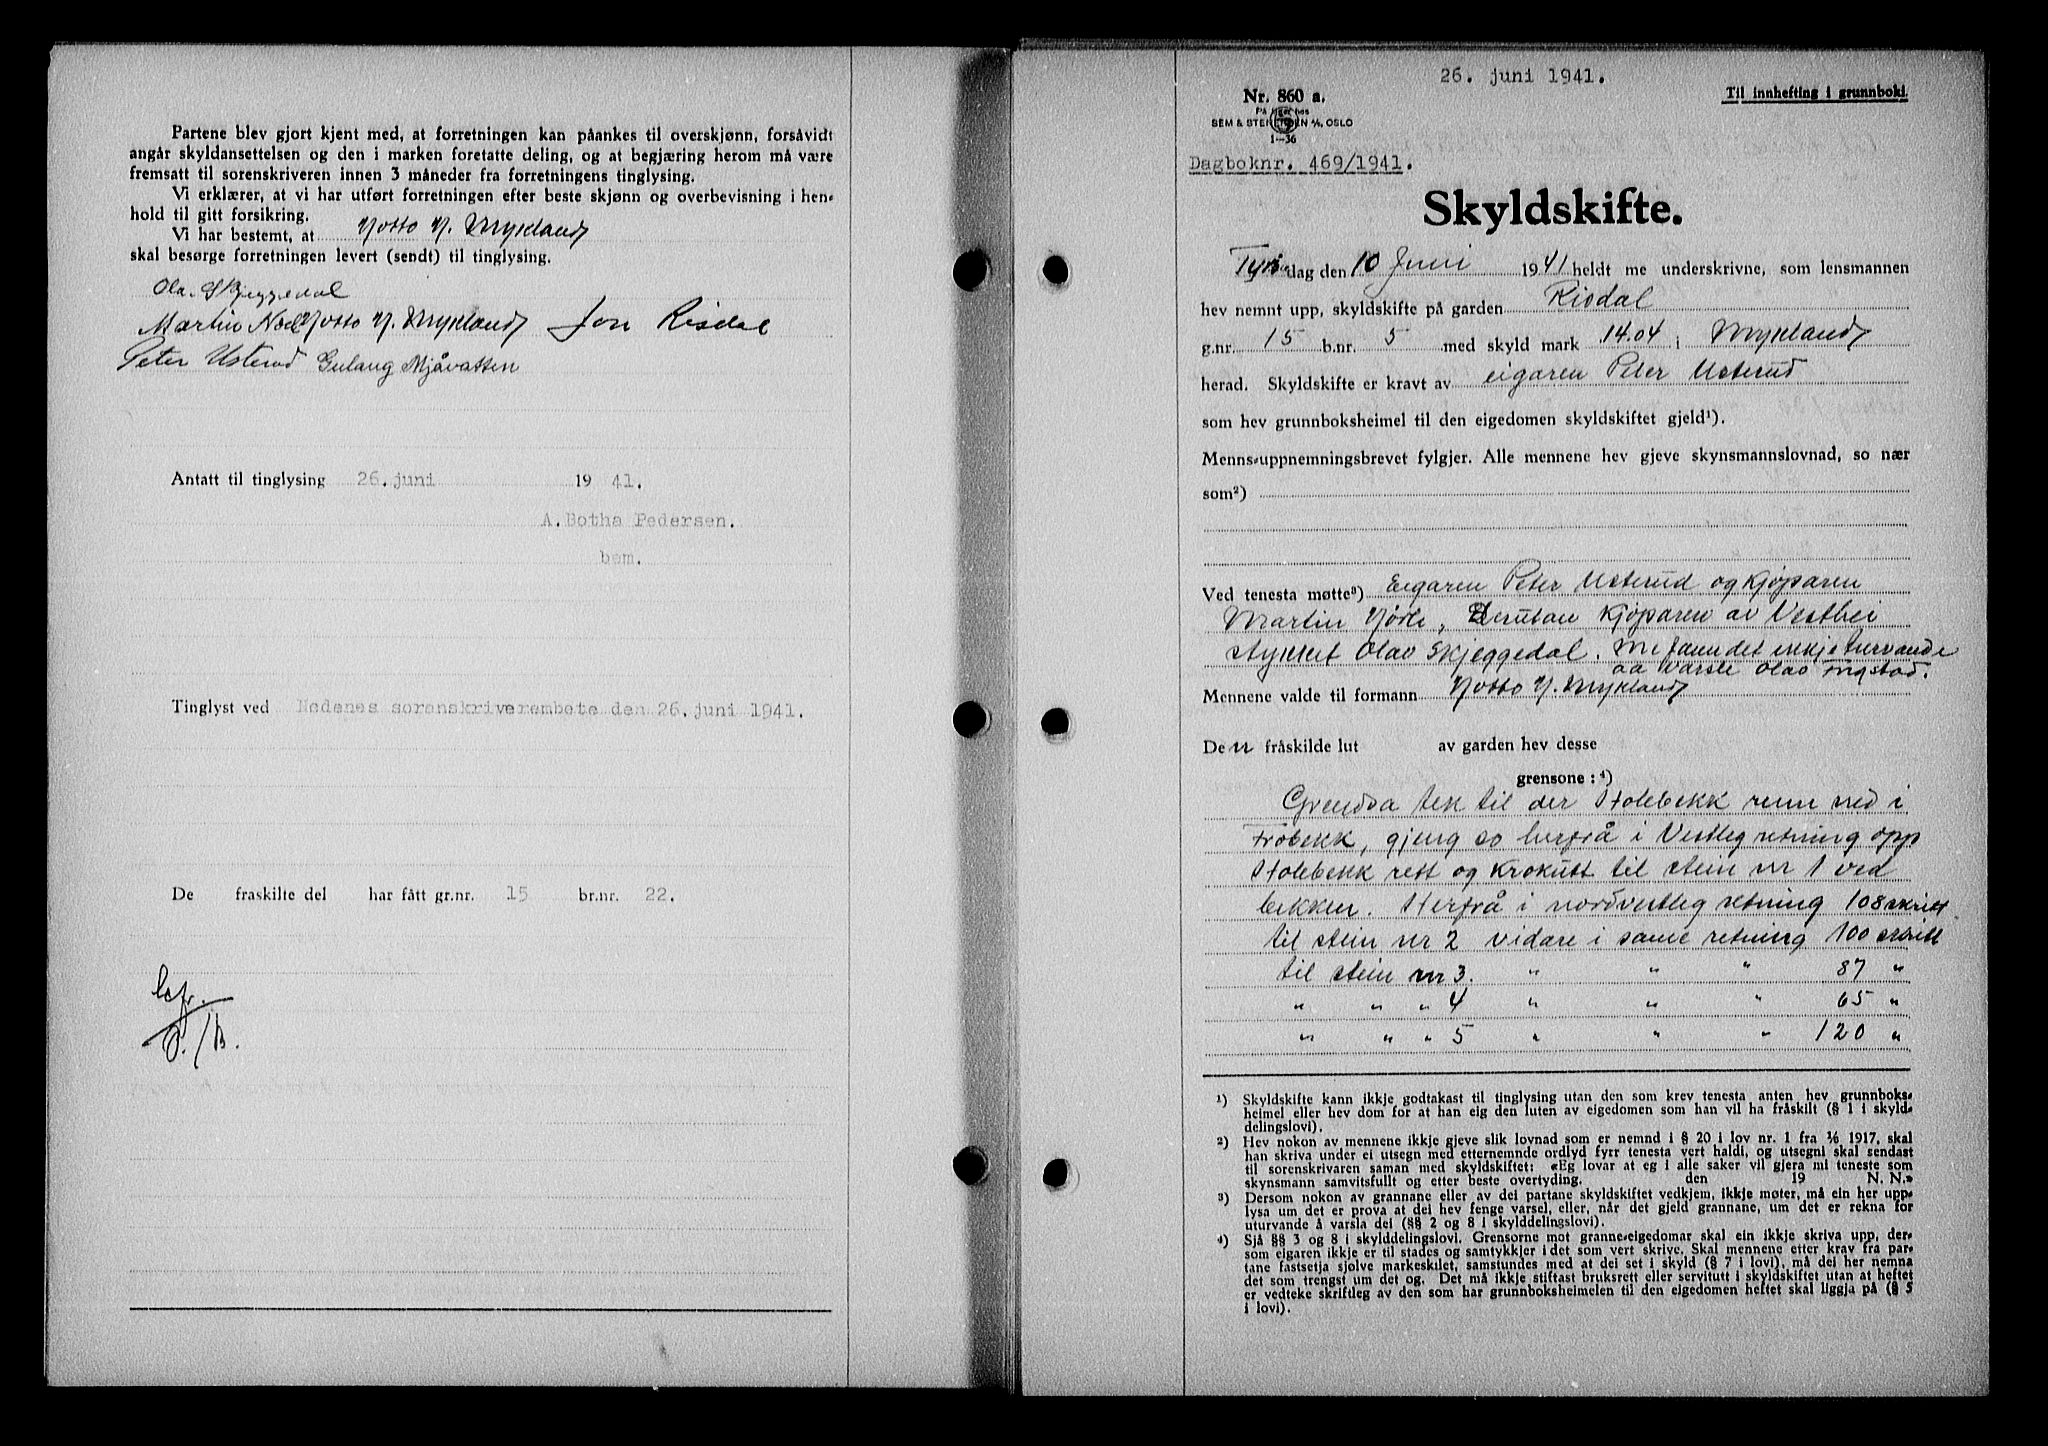 Partene blev gjort kjent med, at forretningen kan påankes til overskjønn, forsåvidt
angår skyldansettelsen og den i marken foretatte deling, og at begjæring herom må være
fremsatt til sorenskriveren innen 3 måneder fra forretningens tinglysing.
Vi erklærer, at vi har utført forretningen efter beste skjønn og overbevisning i hen-
hold til gitt forsikring.
Vi har bestemt, at Notto N. Mykland
skal besørge forretningen levert (sendt) til tinglysing.
Ola. Skjeggedal
Martin Notto N. Mykland Jon Risdal
Peter Usterud Gulaug Mjåvatten
Antatt til tinglysing 26. juni 19 41.
A. Botha Pedersen.
bem.
Tinglyst ved Nedenes sorenskriverembete den 26. juni 1941.
De fraskilte del har fått gr.nr. 15 br.nr. 22.
26. juni 1941.
Nr. 860 a.
Til innhefting i grunnboki.
På lager hos
SEM & STENERSEN A/S, OSLO
1-36
Dagboknr. 469/1941.
Skyldskifte.
Tysdag den 10 Juni 1941 heldt me underskrivne, som lensmannen
hev nemnt upp, skyldskifte på garden Risdal
g.nr. 15 b.nr. 5 med skyld mark 14.04 i Mykland
herad. Skyldskifte er kravt av eigaren Peter Usterud
som hev grunnboksheimel til den eigedomen skyldskiftet gjeld¹).
Menns-uppnemningsbrevet fylgjer. Alle mennene hev gjeve skynsmannslovnad, so nær
som²)
Ved tenesta møtte³) Eigaren Peter Usterud og Kjøparen
Martin , Desutan Kjøparen av Vesthei
stykket Olav Skjeggedal. Me fann det inkje turvande
aa varsle Olav
Mennene valde til formann Notto N. Mykland
De n fråskilde lut av garden hev desse
grensone: ⁴)
Grensa tek til der Stolebekk renn ned i
Trobekk, gjeng so herfrå i Vestleg retning opp
Stolebekk rett og krokutt til stein nr 1 ved
bekken. Herfrå i nordvestleg retning 108 skritt
til stein nr 2 vidare i same retning 100 skritt
til stein nr 3. " " " 87 "
" " " 4 " " " 65 "
" " " 5 " " " 120 "
¹) Skyldskifte kann ikkje godtakast til tinglysing utan den som krev tenesta anten hev grunnboks-
heimel eller hev dom for at han eig den luten av eigedomen som han vil ha fråskilt (§ 1 i skyld-
delingslovi).
²) Hev nokon av mennene ikkje gjeve slik lovnad som er nemnd i § 20 i lov nr. 1 fra 1/6 1917, skal
han skriva under ei utsegn med etternemnde ordlyd fyrr tenesta vert haldi, og utsegni skal sendast
til sorenskrivaren saman med skyldskiftet: «Eg lovar at eg i alle saker vil gjera mi teneste som
skynsmann samvitsfullt og etter beste overtyding. den 19 N. N.»
³) Dersom nokon av grannane eller av dei partane skyldskiftet vedkjem, ikkje møter, må ein her upp-
lysa um det er prova at dei hev fenge varsel, eller, når det gjeld grannane, um det er rekna for
uturvande å varsla dei (§§ 2 og 8 i skylddelingslovi).
⁴) Sjå §§ 3 og 8 i skylddelingslovi. Grensorne mot granne-eigedomar skal ein ikkje skriva upp, der-
som eigaren ikkje er til stades og samtykkjer i det som vert skrive. Skal mennene etter krav fra par-
tane fastsetja sjølve markeskilet, samstundes med at dei set i skyld (§ 7 i lovi), må dei her nemna
det som trengst um det og. Det må ikkje stiftast bruksrett eller servitutt i skyldskiftet utan at heftet
er vedteke skriftleg av den som har grunnboksheimelen til den eigedomen heftet skal liggja på (§ 5
i lovi).